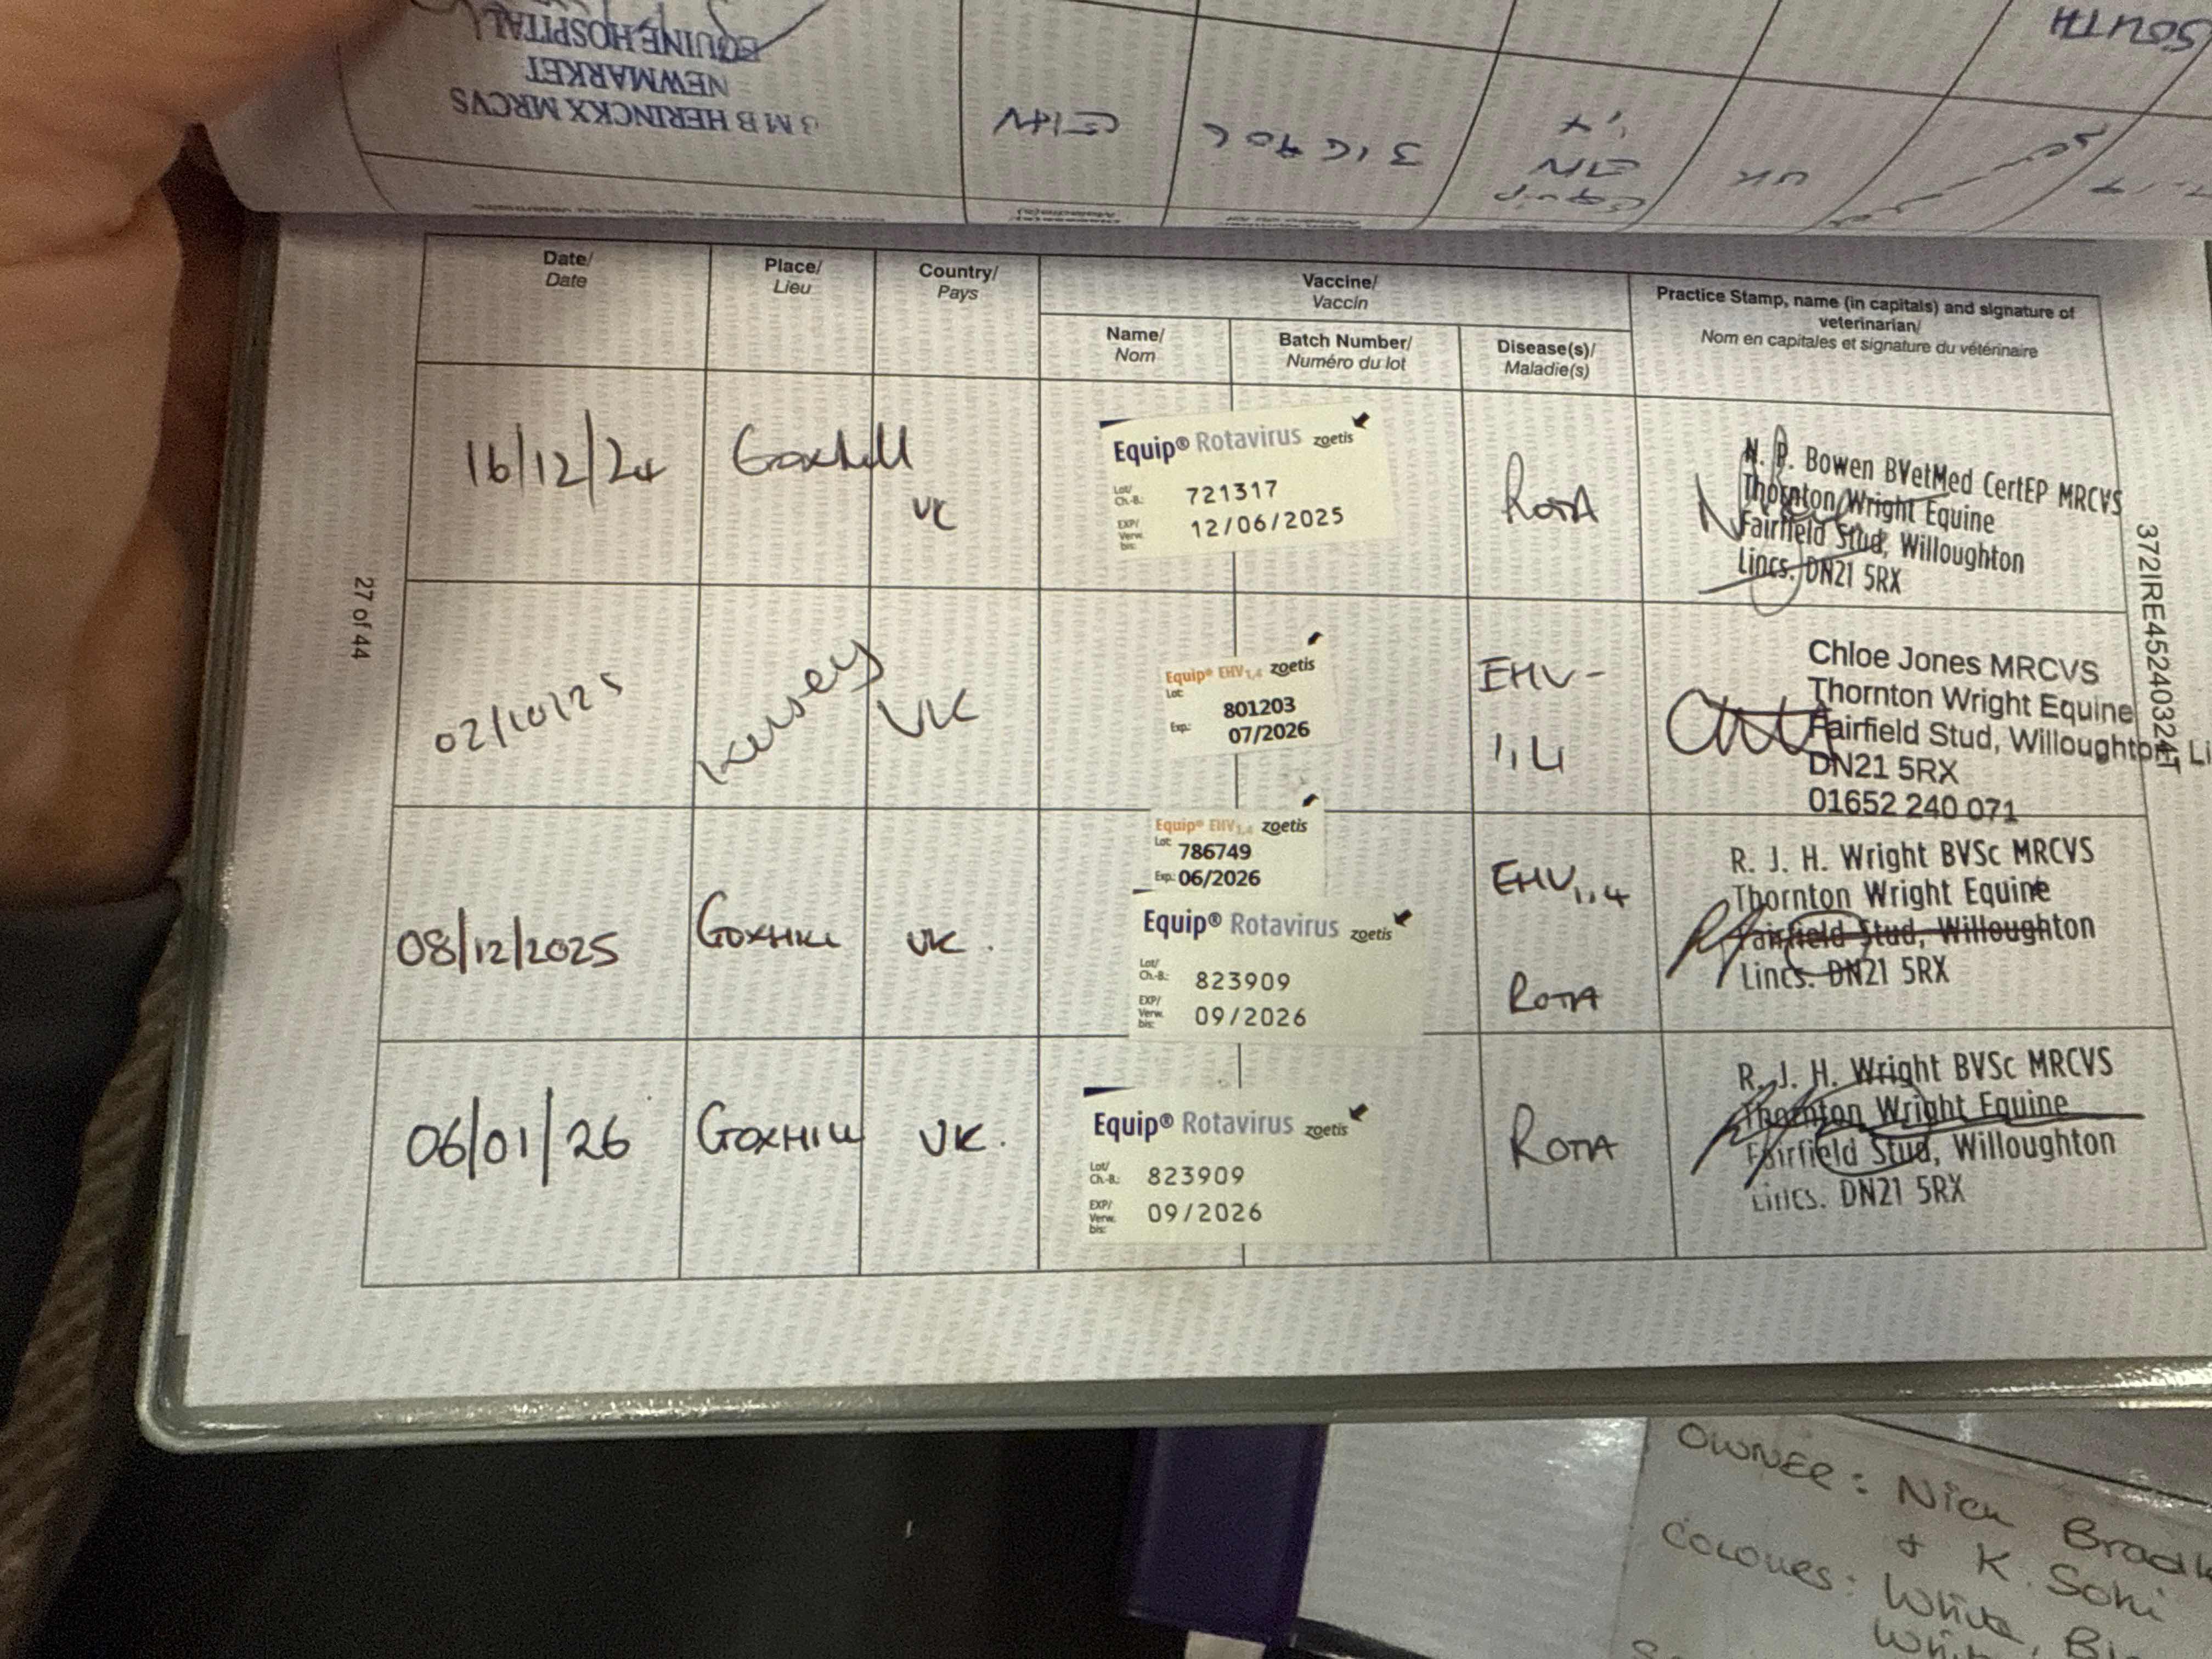 EQUINE HOSPITAL
NEWMARKET
M B HERINCKX MRCVS
EHV
Equip
EHV
1,4
UK
SOUTH
Date/
Date
Place/
Lieu
Country/
Pays
Vaccine/
Vaccin
Name/
Nom
Batch Number/
Numéro du lot
Disease(s)/
Maladie(s)
Practice Stamp, name (in capitals) and signature of
veterinarian/
Nom en capitales et signature du vétérinaire
16/12/24
Goxhill
UK
Equip® Rotavirus zoetis
Lot/
Ch.-B.: 721317
EXP/
Verw.
bis: 12/06/2025
ROTA
N. P. Bowen BVetMed CertEP MRCVS
Thornton Wright Equine
Fairfield Stud, Willoughton
Lincs. DN21 5RX
02/10/25
Kelsey
UK
Equip® EHV1,4 zoetis
Lot: 801203
Exp.: 07/2026
EHV-
1,4
Chloe Jones MRCVS
Thornton Wright Equine
Fairfield Stud, Willoughton, Li
DN21 5RX
01652 240 071
08/12/2025
GOXHILL
UK.
Equip® EHV1,4 zoetis
Lot: 786749
Exp.: 06/2026
Equip® Rotavirus zoetis
Lot/
Ch.-B.: 823909
EXP/
Verw.
bis: 09/2026
EHV1,4
ROTA
R. J. H. Wright BVSc MRCVS
Thornton Wright Equine
Fairfield Stud, Willoughton
Lincs. DN21 5RX
06/01/26
GOXHILL
UK.
Equip® Rotavirus zoetis
Lot/
Ch.-B.: 823909
EXP/
Verw.
bis: 09/2026
ROTA
R. J. H. Wright BVSc MRCVS
Thornton Wright Equine
Fairfield Stud, Willoughton
Lincs. DN21 5RX
27 of 44
372IRE45240324T
OWNER: Nick Bradl
& K. Sohi
COLOURS: White,